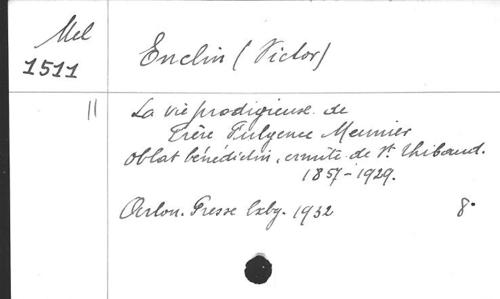 Mel
1511
Enclin (Victor)
11
La vie prodigieuse de
Frère Fulgence Meunier
oblat bénédictin, ermite de St. Thibaud.
1857-1929.
Arlon. Presse lxbg. 1932
8°